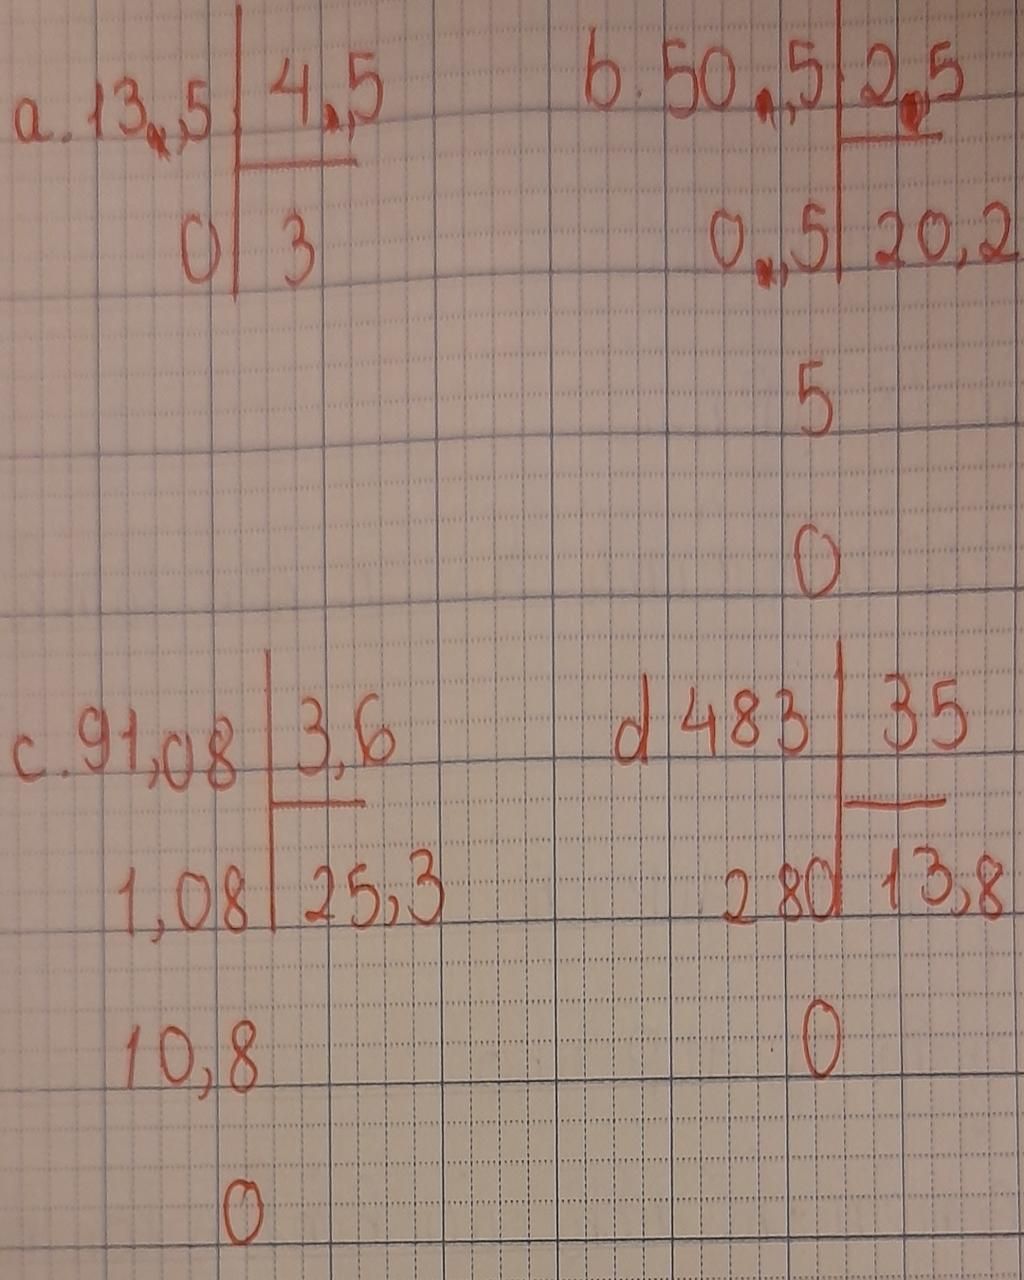 a. 13,5 | 4,5
0 | 3
b. 50,5 | 2,5
0,5 | 20,2
5
0
c. 91,08 | 3,6
1,08 | 25,3
10,8
0
d 483 | 35
280 | 13,8
0